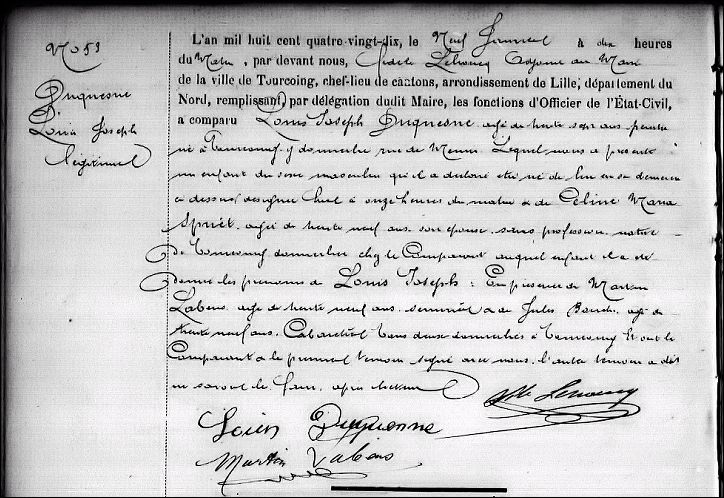 No 53
Duquesne
Louis Joseph
Légitime
L'an mil huit cent quatre-vingt-dix, le Neuf Janvier à dix heures
du Matin, par devant nous, Adjoint au Maire
de la ville de Tourcoing, chef-lieu de cantons, arrondissement de Lille, département du
Nord, remplissant par délégation dudit Maire, les fonctions d'Officier de l'État-Civil,
a comparu Louis Joseph Duquesne âgé de trente sept ans
né à Tourcoing y domicilié rue de Menin Lequel nous a présenté
un enfant du sexe masculin qu'il a déclaré être né de lui en sa demeure
ci dessus désignée hier à onze heures du matin & de Céline Marie
Spriet âgée de trente neuf ans son épouse sans profession native
de Tourcoing domiciliée chez le Comparant auquel enfant il a
donné les prénoms de Louis Joseph : En présence de Martin
Labens âgé de trente neuf ans & de Jules âgé de
trente neuf ans Cabaretier tous deux domiciliés à Tourcoing Et ont le
Comparant & le premier témoin signé avec nous l'autre témoin a dit
ne savoir le faire après lecture
Louis Duquesne
Martin Labens